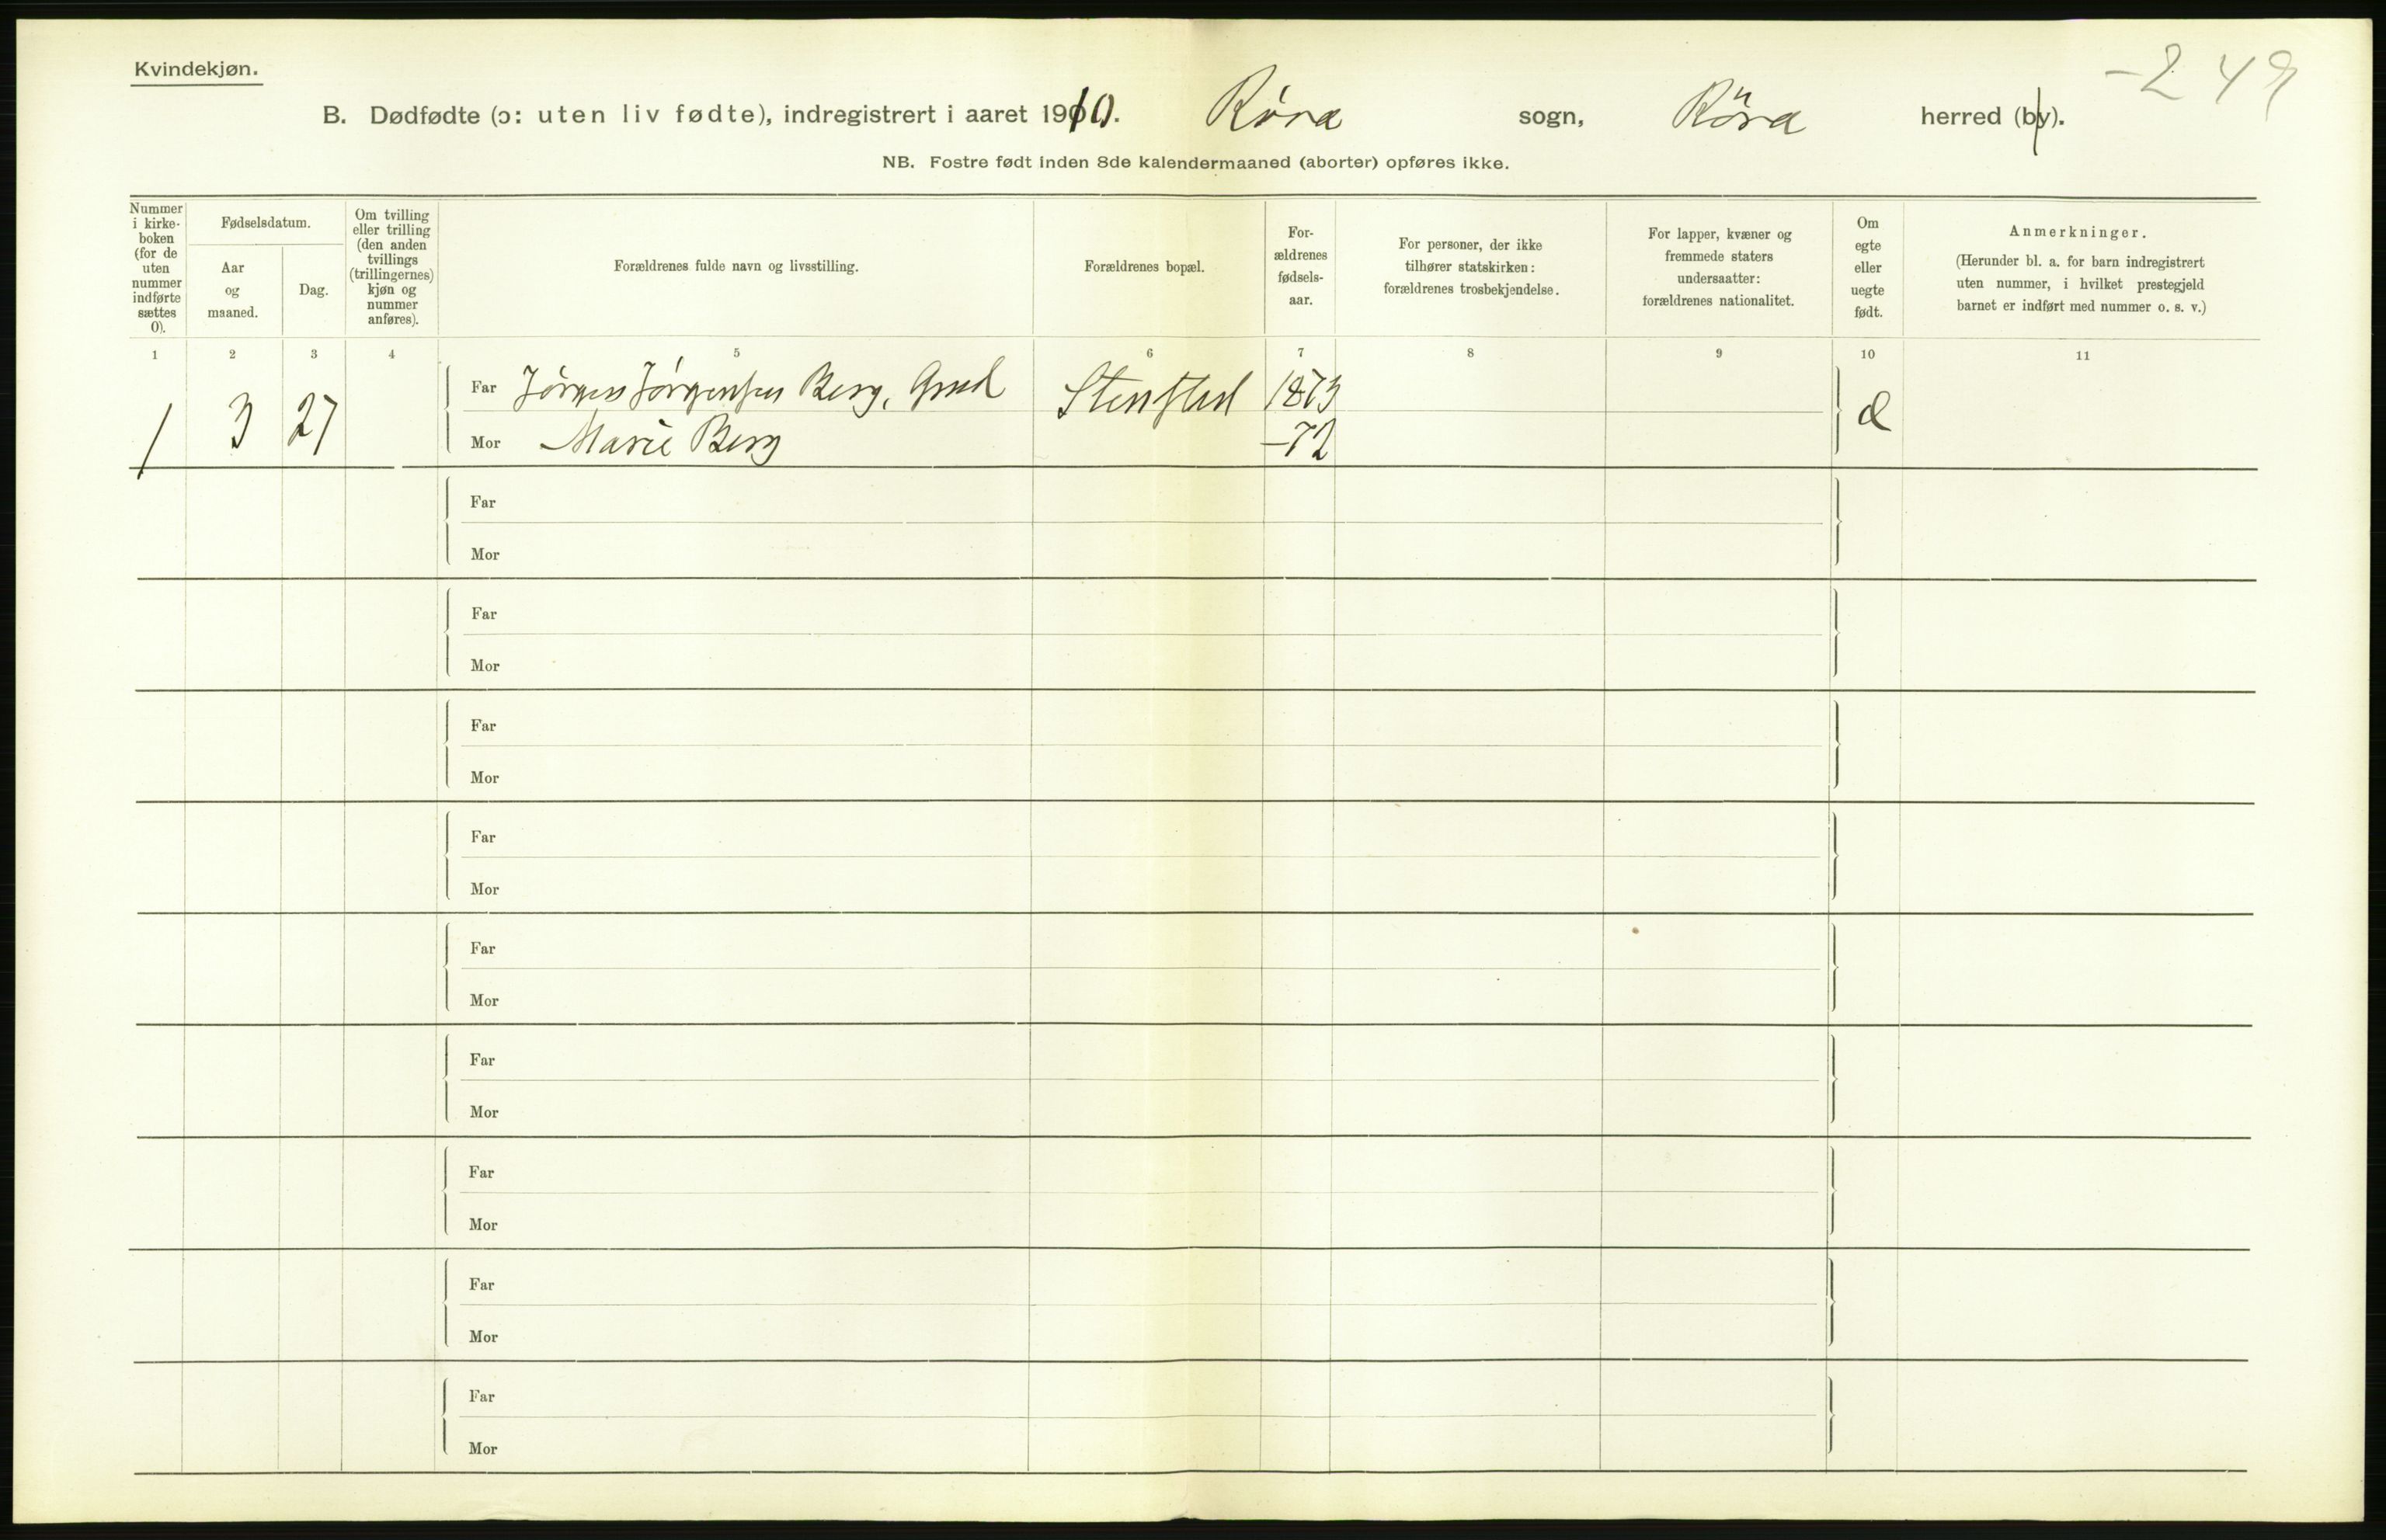 Kvindekjøn.
-249
B. Dødfødte (ɔ: uten liv fødte), indregistrert i aaret 1910. Røra sogn, Røra herred (by).
NB. Fostre født inden 8de kalendermaaned (aborter) opføres ikke.
Nummer i kirke-
boken
(for de
uten
nummer
indførte
sættes
0).
Fødselsdatum.
Aar
og
maaned.
Dag.
Om tvilling
eller trilling
(den anden
tvillings
(trillingernes)
kjøn og
nummer
anføres).
Forældrenes fulde navn og livsstilling.
Forældrenes bopæl.
For-
ældrenes
fødsels-
aar.
For personer, der ikke
tilhører statskirken:
forældrenes trosbekjendelse.
For lapper, kvæner og
fremmede staters
undersaatter:
forældrenes nationalitet.
Om
egte
eller
uegte
født.
Anmerkninger.
(Herunder bl. a. for barn indregistrert
uten nummer, i hvilket prestegjeld
barnet er indført med nummer o. s. v.)
1 2 3 4 5 6 7 8 9 10 11
1 3 27 Far Jörgen Jörgensen Berg, Stensstad 1873
Mor Marie Berg -72
Far
Mor
Far
Mor
Far
Mor
Far
Mor
Far
Mor
Far
Mor
Far
Mor
Far
Mor
Far
Mor